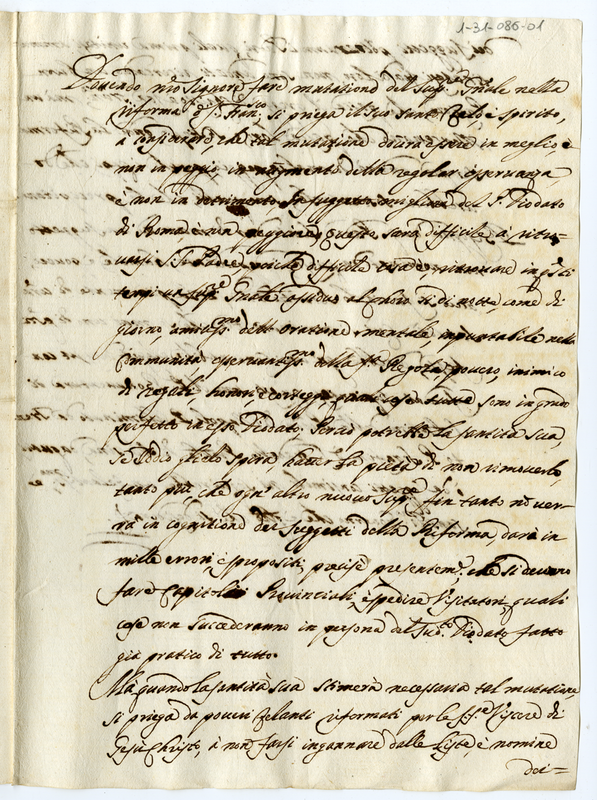 1-31-086-01
Dovendo n̄ro Signore fare mutatione del Sup.re Gn̄ale nella
riforma di S. Fran.co si priega il suo santo Zelo, e spirito,
a considerare che tal mutatione dovrà essere in meglio, e
non in peggio, in augmento della regolar osservanza,
e non in detrimento. In suggetto migliore del P. Diodato
di Roma, e non peggiore, questo sarà difficile à ritro=
varsi S.to Padre, poiche difficile sarà ritrovare in q.sti
tempi un Sup.re Gn̄ale assiduo al choro sì di notte, come di
giorno, amiciss.mo dell'oratione mentale, imputabile nella
Communità osservantiss.mo della S.ta Regola povero, inimico
di regali honori e corteggi, quali cose tutte sono in grado
perfetto in esso Diodato. Perciò potrebbe la santità sua,
se Iddio glielo spira, haver la pietà di non rimoverlo,
tanto più, che ogn'altro nuovo Sup.re fin tanto nō ver=
rà in cognitione dei suggetti della Riforma, darà in
mille errori, e spropositi, precise presentem.te, che si devono
fare Capitoli Provinciali, e spedire Visitatori, quali
cose non succederanno in persona del sud.o Diodato fatto
già pratico di tutto.
Mà quando la santità sua stimerà necessaria tal mutatione
si priega da poveri Zelanti riformati per le S.e Viscere di
Giesù Christo, à non farsi ingannare dalle liste, e nomine
dei=